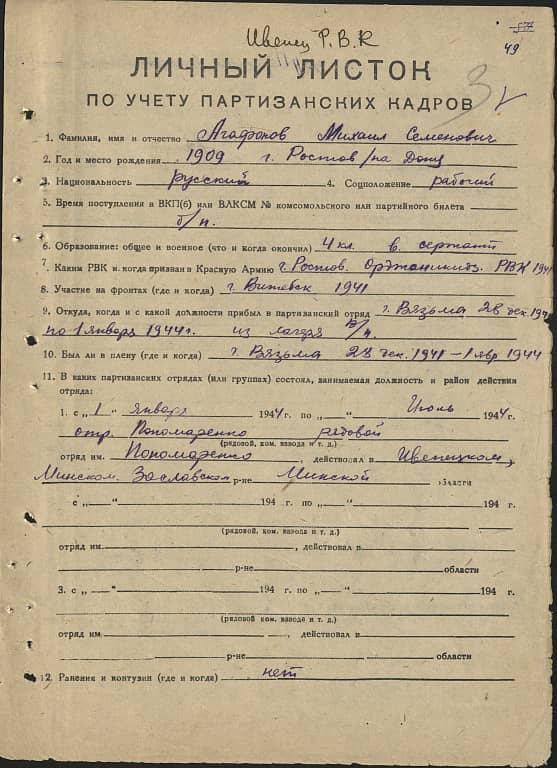 57
49
Ивенец Р.В.К
3
ЛИЧНЫЙ ЛИСТОК
ПО УЧЕТУ ПАРТИЗАНСКИХ КАДРОВ
1. Фамилия, имя и отчество Агафонов Михаил Семенович
2. Год и место рождения 1909 г. Ростов/на Дону
3. Национальность русский 4. Соцположение рабочий
5. Время поступления в ВКП(б) или ВЛКСМ № комсомольского или партийного билета
б/п.
6. Образование: общее и военное (что и когда окончил) 4 кл. в. сержант
7. Каким РВК и когда призван в Красную Армию г. Ростов. Орджоникидз. РВК 1941
8. Участие на фронтах (где и когда) г. Витебск 1941
9. Откуда, когда и с какой должности прибыл в партизанский отряд г. Вязьма 28 дек. 1941
по 1 января 1944г. из лагеря в/п.
10. Был ли в плену (где и когда) г. Вязьма 28 дек. 1941 – 1 янв 1944
11. В каких партизанских отрядах (или группах) состоял, занимаемая должность и район действия
отряда:
1. с „1" января 1944 г. по „ " Июль 1944 г.
отр. Пономаренко рядовой
(рядовой, ком. взвода и т. д.)
отряд им. Пономаренко, действовал в Ивенецком,
Минском. Заславском р-не Минской области
с „ " 194 г. по „ " 194 г.
(рядовой, ком. взвода и т. д.)
отряд им. , действовал в
р-не области
3. с „ " 194 г. по „ " 194 г.
(рядовой, ком. взвода и т. д.)
отряд им. , действовал в
р-не области
12. Ранения и контузии (где и когда) нет